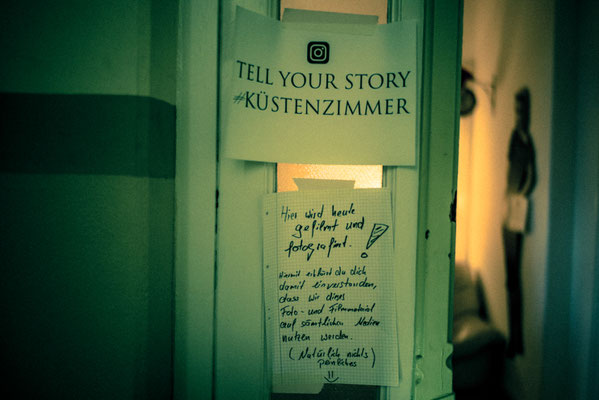 TELL YOUR STORY
#KÜSTENZIMMER
Hier wird heute
gefilmt und
fotografiert.!
Hiermit erklärst du dich
damit einverstanden,
dass wir dieses
Foto- und Filmmaterial
auf sämtlichen Medien
nutzen werden.
(Natürlich nichts
peinliches)